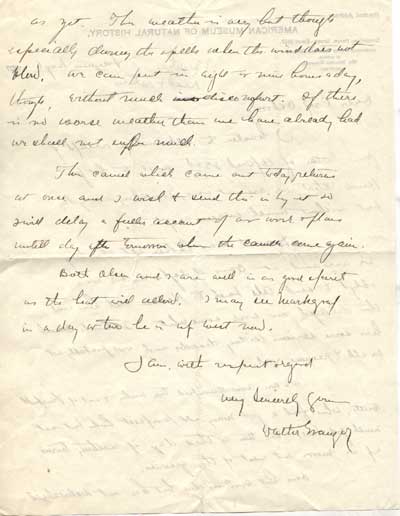 as yet. The weather is very hot though
especially during the spells when the wind does not
blow. We can put in eight or nine hours a day,
though, without much discomfort. If there
is no worse weather than we have already had
we shall not suffer much.
The camel which came out today returns
at once and I wish to send this in by it so
will delay a fuller account of our work & plans
until day after tomorrow when the camels come again.
Both Olsen and I are well in as good spirit
as the heat will allow. I may see Markgraf
in a day or two he is up west now.
I am, with respect & regard
Very Sincerely Yours
Walter Granger
AMERICAN MUSEUM OF NATURAL HISTORY